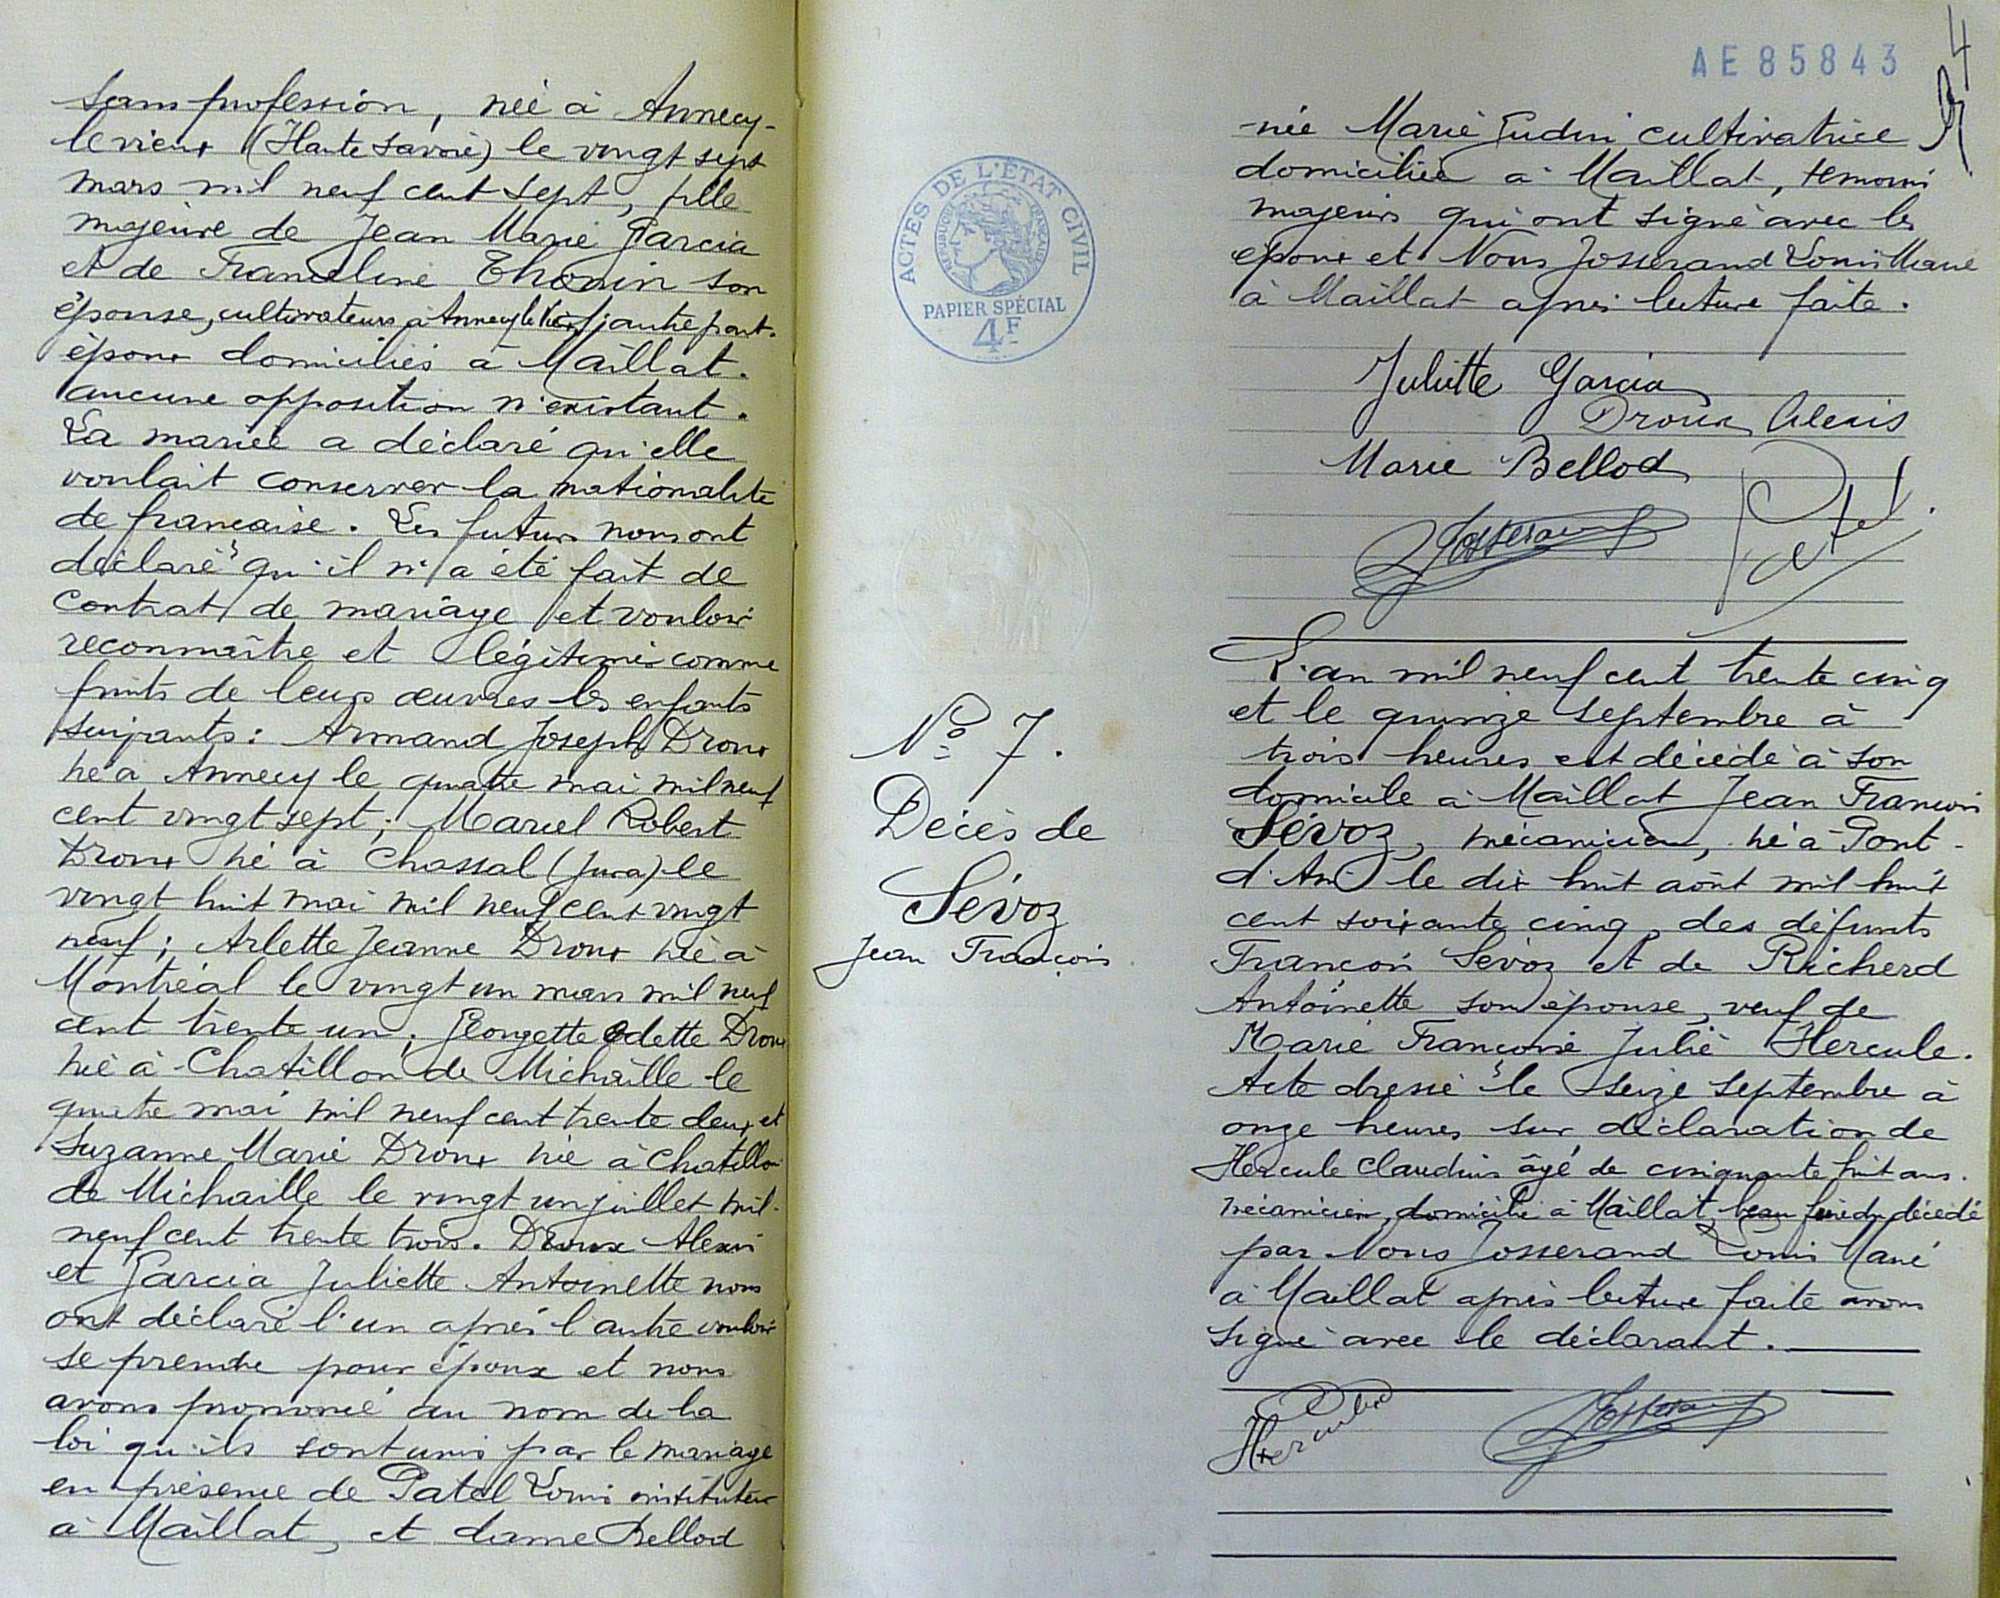 sans profession, née à Annecy-
le vieux (Haute Savoie) le vingt sept
mars mil neuf cent sept, fille
majeure de Jean Marie Garcia
et de Franceline Thonin son
épouse, cultivateurs à Annecy le Vieux, d'autre part.
époux domiciliés à Maillat.
aucune opposition n'existant.
La mariée a déclaré qu'elle
voulait conserver la nationalité
de française. Les futurs nous ont
déclaré qu'il n'a été fait de
contrat de mariage et vouloir
reconnaître et légitimer comme
fruits de leurs œuvres les enfants
suivants: Armand Joseph Droux
né à Annecy le quatre mai mil neuf
cent vingt sept; Marcel Robert
Droux né à Chassal (Jura) le
vingt huit mai mil neuf cent vingt
neuf; Arlette Jeanne Droux née à
Montréal le vingt un mars mil neuf
cent trente un; Georgette Odette Droux
née à Chatillon de Michaille le
quatre mai mil neuf cent trente deux et
Suzanne Marie Droux née à Chatillon
de Michaille le vingt un juillet mil-
neuf cent trente trois. Droux Alexis
et Garcia Juliette Antoinette nous
ont déclaré l'un après l'autre vouloir
se prendre pour époux et nous
avons prononcé au nom de la
loi qu'ils sont unis par le mariage
en présence de Patel Louis instituteur
à Maillat, et dame Bellod
ACTES DE L'ÉTAT CIVIL
RÉPUBLIQUE FRANÇAISE
PAPIER SPÉCIAL
4F
No 7.
Décès de
Sévoz
Jean François
AE85843
4
née Marie Gudin cultivatrice
domiciliée à Maillat, témoins
majeurs qui ont signé avec les
époux et Nous Josserand Louis Marie
à Maillat après lecture faite.
Juliette Garcia
Droux Alexis
Marie Bellod
Josserand
Patel
L'an mil neuf cent trente cinq
et le quinze septembre à
trois heures est décédé à son
domicile à Maillat Jean François
Sévoz, mécanicien, né à Pont-
d'Ain le dix huit août mil huit
cent soixante cinq, des défunts
François Sévoz et de Richerd
Antoinette son épouse, veuf de
Marie Françoise Julie Hercule.
Acte dressé le seize septembre à
onze heures sur déclaration de
Hercule Claudius âgé de cinquante huit ans.
mécanicien, domicilié à Maillat, beau frère du décédé
par Nous Josserand Louis Marie
à Maillat après lecture faite avons
signé avec le déclarant.
Hercule
Josserand